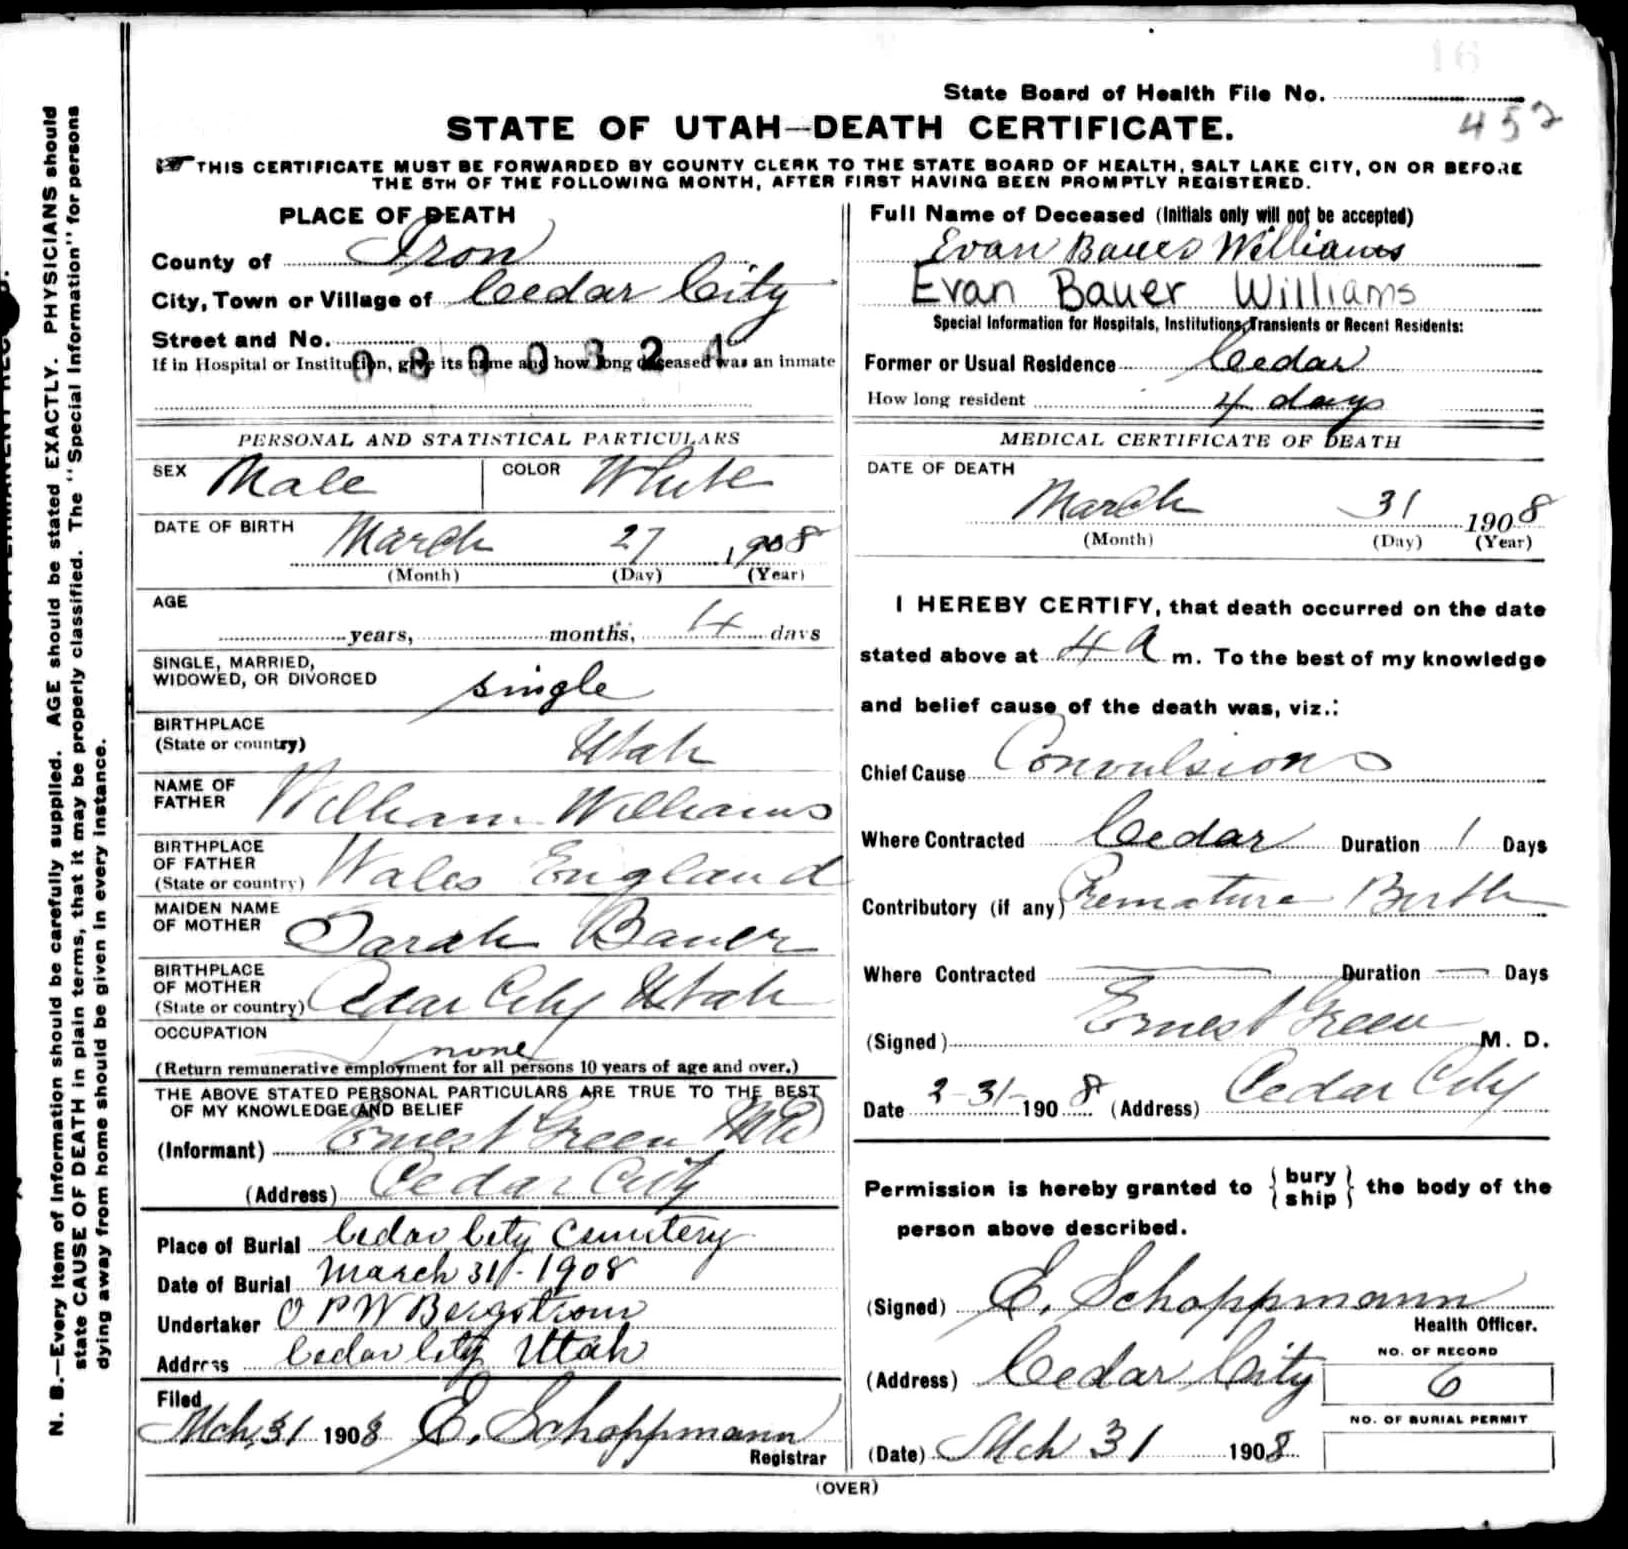 16
State Board of Health File No.
452
STATE OF UTAH—DEATH CERTIFICATE.
THIS CERTIFICATE MUST BE FORWARDED BY COUNTY CLERK TO THE STATE BOARD OF HEALTH, SALT LAKE CITY, ON OR BEFORE
THE 5TH OF THE FOLLOWING MONTH, AFTER FIRST HAVING BEEN PROMPTLY REGISTERED.
N. B.—Every item of information should be carefully supplied. AGE should be stated EXACTLY. PHYSICIANS should
state CAUSE OF DEATH in plain terms, that it may be properly classified. The "Special Information" for persons
dying away from home should be given in every instance.
PLACE OF DEATH
County of Iron
City, Town or Village of Cedar City
Street and No.
0800324
If in Hospital or Institution, give its name and how long deceased was an inmate
PERSONAL AND STATISTICAL PARTICULARS
SEX Male COLOR White
DATE OF BIRTH March 27 1908
(Month) (Day) (Year)
AGE
years, months, 4 days
SINGLE, MARRIED,
WIDOWED, OR DIVORCED single
BIRTHPLACE
(State or country) Utah
NAME OF
FATHER William Williams
BIRTHPLACE
OF FATHER
(State or country) Wales England
MAIDEN NAME
OF MOTHER Sarah Bauer
BIRTHPLACE
OF MOTHER
(State or country) Cedar City Utah
OCCUPATION
none
(Return remunerative employment for all persons 10 years of age and over.)
THE ABOVE STATED PERSONAL PARTICULARS ARE TRUE TO THE BEST
OF MY KNOWLEDGE AND BELIEF
(Informant) Ernest Green MD
(Address) Cedar City
Place of Burial Cedar City Cemetery
Date of Burial March 31 - 1908
Undertaker O P W Bergstrom
Address Cedar City Utah
Filed
Mch, 31 1908 E. Schoppmann
Registrar
Full Name of Deceased (Initials only will not be accepted)
Evan Bauer Williams
Evan Bauer Williams
Special Information for Hospitals, Institutions, Transients or Recent Residents:
Former or Usual Residence Cedar
How long resident 4 days
MEDICAL CERTIFICATE OF DEATH
DATE OF DEATH
March 31 1908
(Month) (Day) (Year)
I HEREBY CERTIFY, that death occurred on the date
stated above at 4 A m. To the best of my knowledge
and belief cause of the death was, viz.:
Chief Cause Convulsions
Where Contracted Cedar Duration 1 Days
Contributory (if any) Premature Birth
Where Contracted — Duration — Days
(Signed) Ernest Green M. D.
Date 2-31- 1908 (Address) Cedar City
Permission is hereby granted to { bury ship } the body of the
person above described.
(Signed) E. Schoppmann
Health Officer.
(Address) Cedar City
NO. OF RECORD
6
NO. OF BURIAL PERMIT
(Date) Mch 31 1908
(OVER)